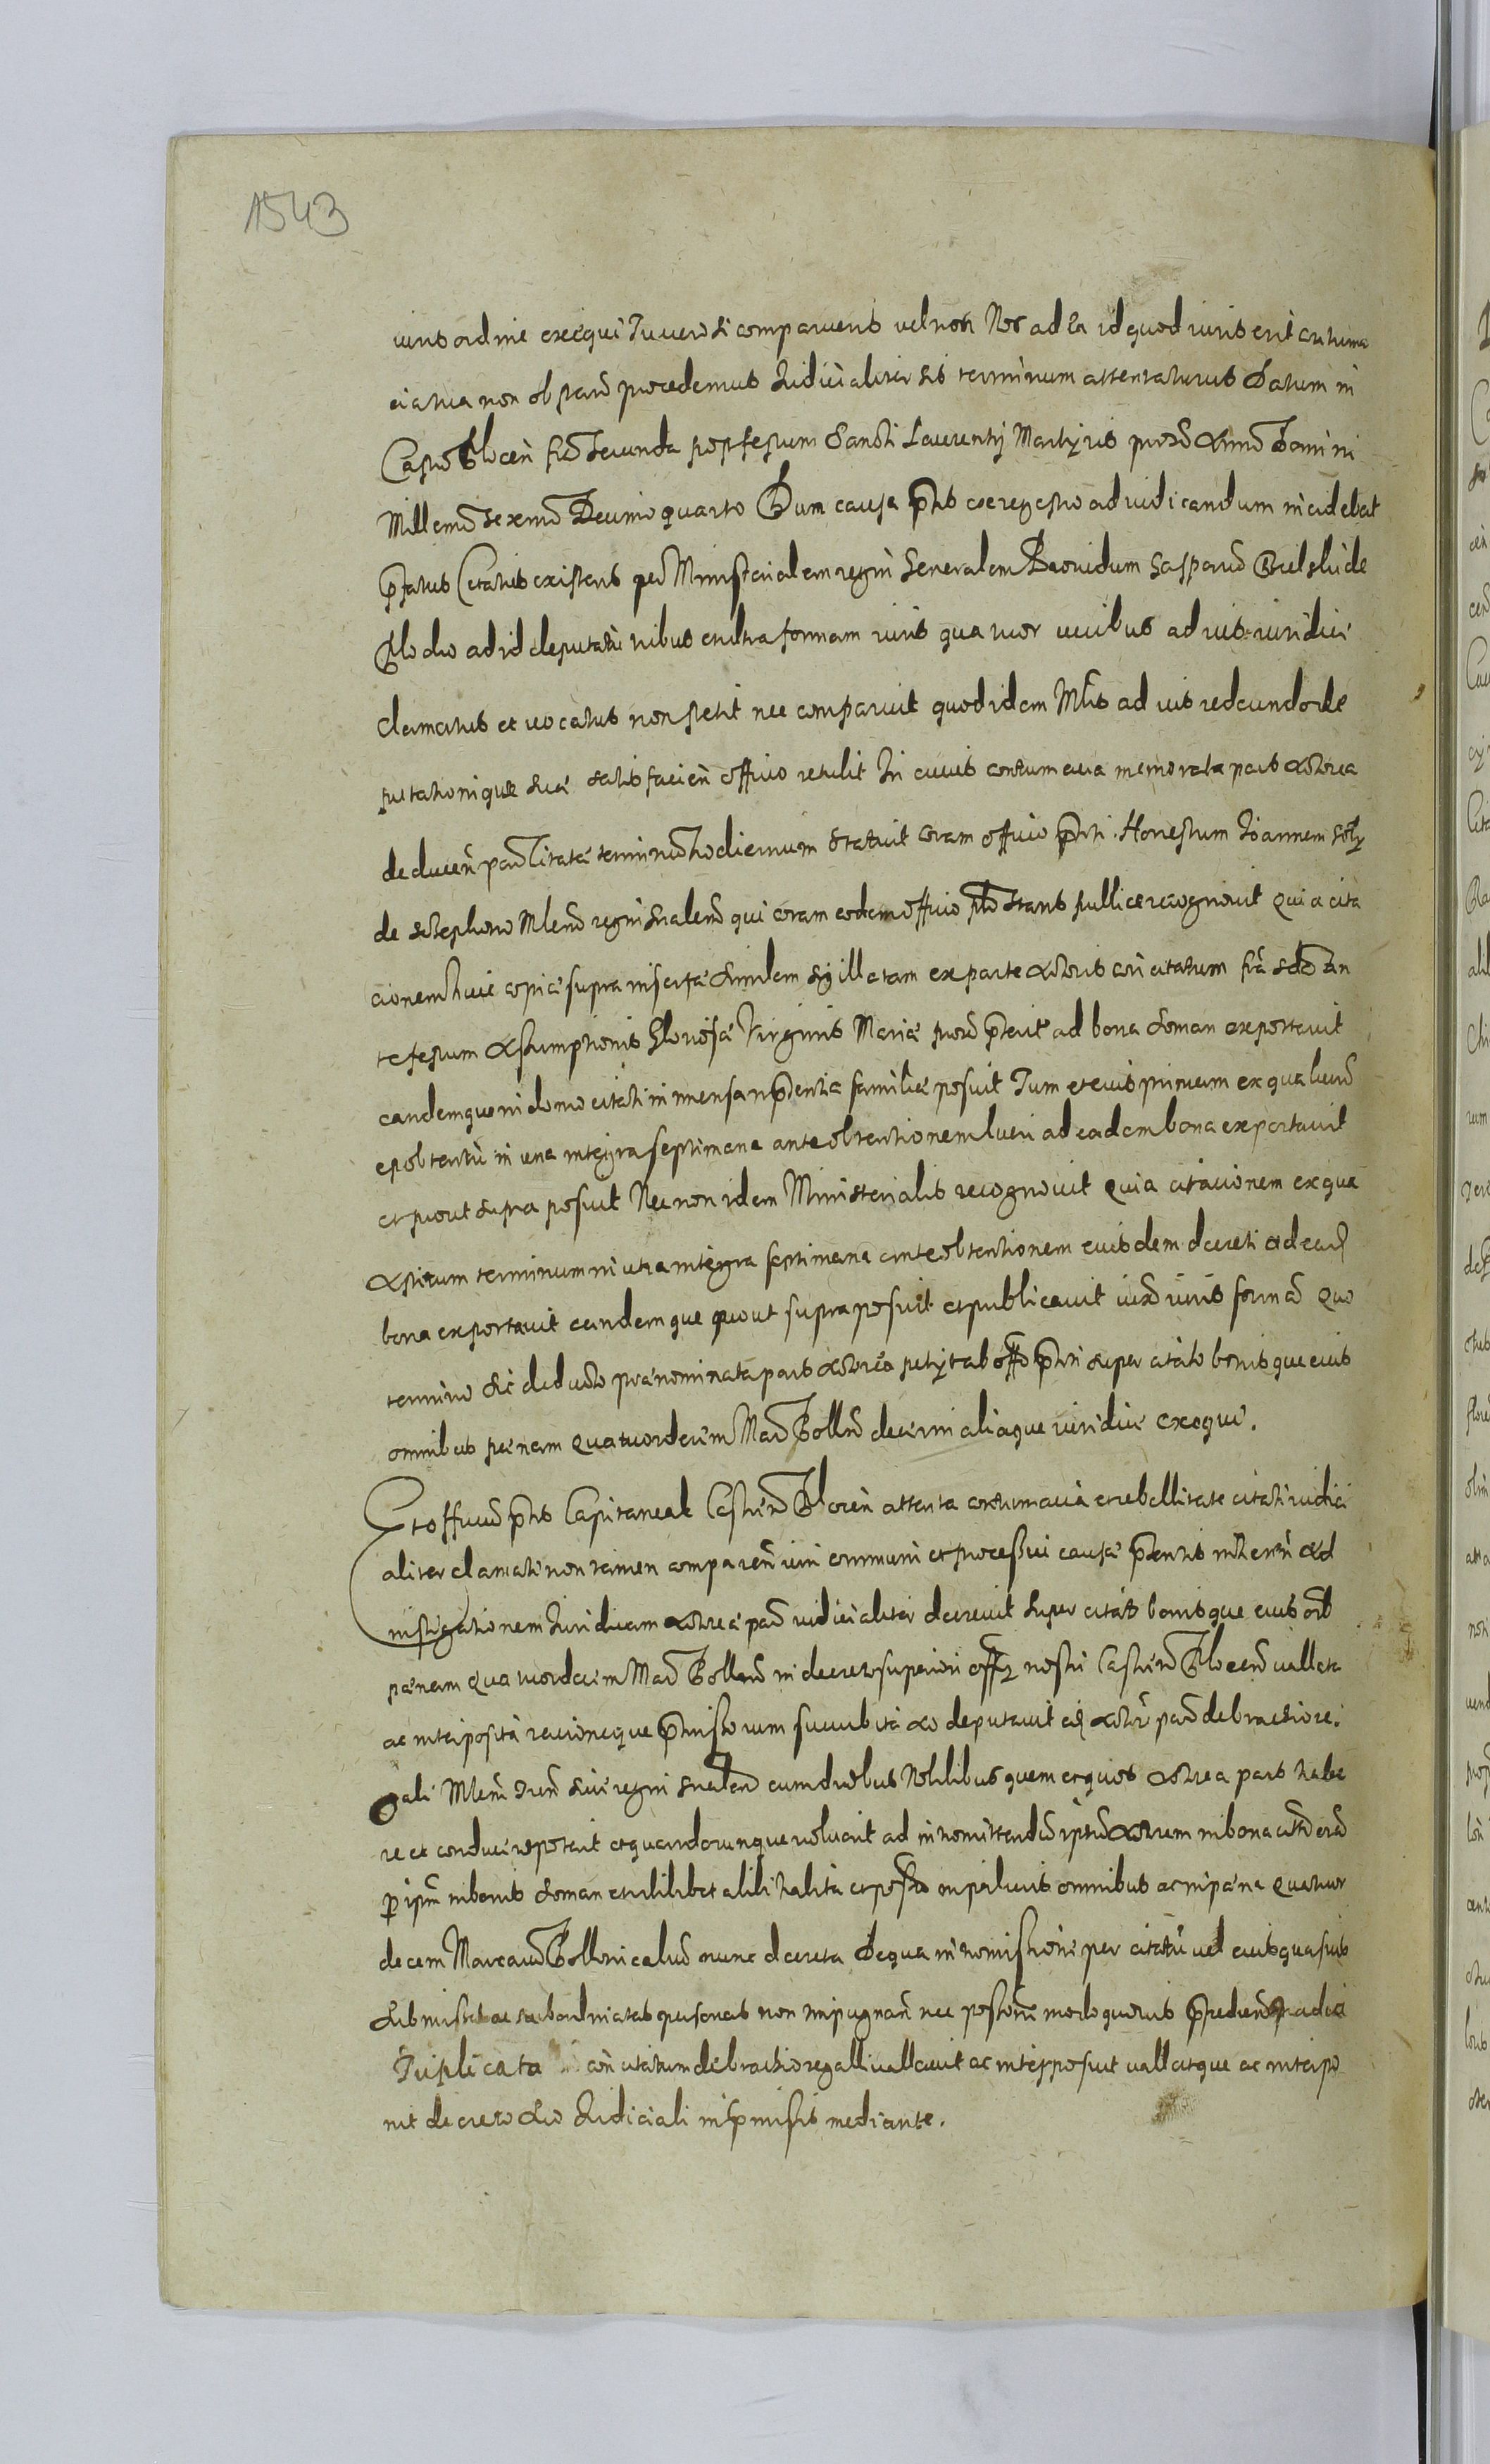 1543
iuris ordine exequi Tu vero si comparueris vel non Nos ad ea id quod iuris erit contuma
cia tua non obstan procedemus Judicialiter sis terminum attentaturus Datum in
Castro Plocen fer secunda post festum Sancti Laurentij Martyris prox Anno Domini
Millemo sexcmo Decimo quarto Dum causa pntis ex regestro ad iudicandum incidebat
pfatus Citatus existens per Ministerialem regni Generalem Prouidum Gasparum de
Plocko ad id deputatu ultra formam iuris quatuor vicibus ad ius iuridici
clamatus et vocatus non stetit nec comparuit quod idem Mlis ad ius redeundo de
putationique suae satisfacien officio retulit In cuius contumacia memorata pars actorea
deducen par citatae terminum hodiernum statuit coram officio pnti Honestum Joannem
de Mlem regni gnalem qui coram eodem officio stans publice recognouit Quia cita
cionem huic copiae supra insertae similem sigillatam ex parte Actoris con citatum an
te festum Assumptionis Gloriosae Virginis Mariae prox pterit ad bona Soman exportauit
eandemque in domo citati in mensa in pntia familiae posuit Tum et eius primum ex qua lucrum
est obtentu in una integra septimana ante obtentionem lucri ad eadem bona exportauit
et prout supra posuit Nec non idem Ministerialis recognouit Quia citacionem ex qua
Astitum terminum in una integra septimana ante obtentionem eiusdem decreti ad ead
bona exportauit eandemque prout supra posuit et publicauit iuxta iuris formam Quo
termino sic deducto praenominata pars Actorea petijt ab offo pnti super citato bonisque eius
omnibus paenam quatuordecim Mar Pollm decerni aliaque iuridice exequi.
Et officium pntis Capitaneale Castren Plocen attenta contumacia et rebellitate citati iudici
aliter clamati non tamen comparen iuri communi et processui causae pntis inheren Ad
instigationem Juridicam Actoreae par iudicialiter decreuit super citato bonisque eius omb
paenam quatuordecim Mar Pollm in decreto superiori offi nostri Castren Plocen vallata
ac interposita racioneque pmissorum succubita Ac deputauit eid Actor par de brachio re
gali Mlem Tren siue regni gnalem cum duobus Nobilibus quem et quos Actorea pars habe
re et conducere poterit et quandocunque voluerit ad intromittendum ipsum Actorem in bona
p ipm in bonis Soman et ubilibet alibi habita et possessa in priluris omnibus ac in paena quatuor
decem Marcarum Pollonicaliu nunc decreta De qua intromissione per citatu vel eius quasuis
submissas ac subordinatas personas non impugnan nec postem modo quouis
Triplicata con citatum de brachio regalli vallauit ac interposuit vallatque ac interpo
nit decreto suo Judiciali in pmissis mediante.